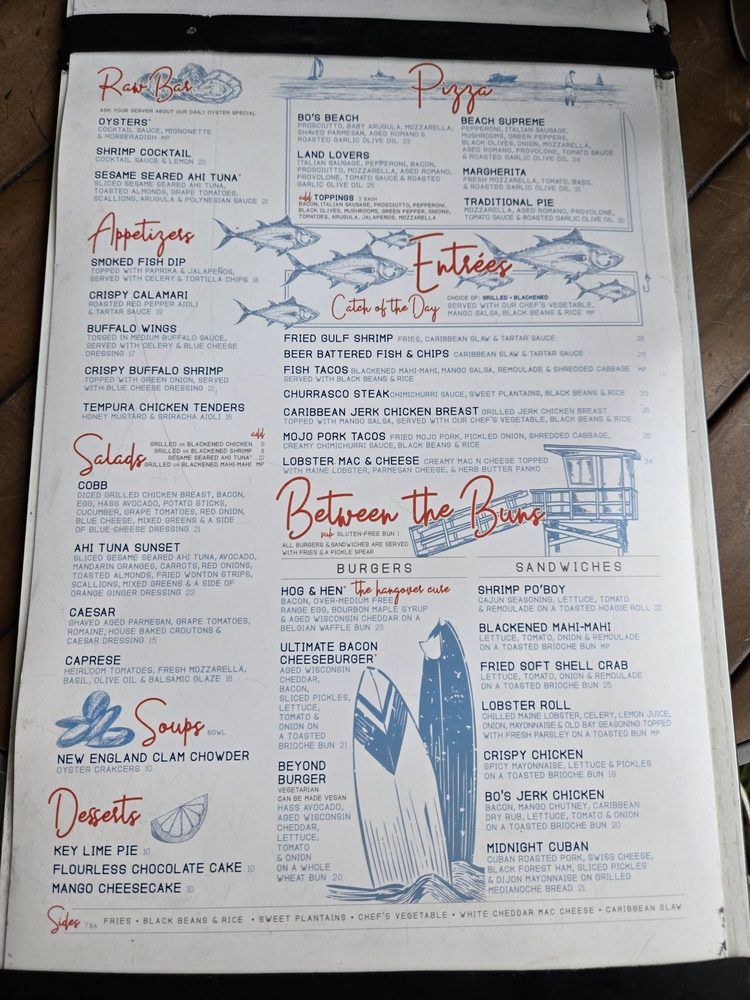 Raw Bar
ASK YOUR SERVER ABOUT OUR DAILY OYSTER SPECIAL
OYSTERS*
COCKTAIL SAUCE, MIGNONETTE
& HORSERADISH MP
SHRIMP COCKTAIL
COCKTAIL SAUCE & LEMON 20
SESAME SEARED AHI TUNA*
SLICED SESAME SEARED AHI TUNA,
TOASTED ALMONDS, GRAPE TOMATOES,
SCALLIONS, ARUGULA & POLYNESIAN SAUCE 21
Appetizers
SMOKED FISH DIP
TOPPED WITH PAPRIKA & JALAPEÑOS,
SERVED WITH CELERY & TORTILLA CHIPS 18
CRISPY CALAMARI
ROASTED RED PEPPER AIOLI
& TARTAR SAUCE 19
BUFFALO WINGS
TOSSED IN MEDIUM BUFFALO SAUCE,
SERVED WITH CELERY & BLUE CHEESE
DRESSING 17
CRISPY BUFFALO SHRIMP
TOPPED WITH GREEN ONION, SERVED
WITH BLUE CHEESE DRESSING 21
TEMPURA CHICKEN TENDERS
HONEY MUSTARD & SRIRACHA AIOLI 16
Salads
add
GRILLED OR BLACKENED CHICKEN 6
GRILLED OR BLACKENED SHRIMP 8
SESAME SEARED AHI TUNA* 12
GRILLED OR BLACKENED MAHI-MAHI MP
COBB
DICED GRILLED CHICKEN BREAST, BACON,
EGG, HASS AVOCADO, POTATO STICKS,
CUCUMBER, GRAPE TOMATOES, RED ONION,
BLUE CHEESE, MIXED GREENS & A SIDE
OF BLUE CHEESE DRESSING 21
AHI TUNA SUNSET
SLICED SESAME SEARED AHI TUNA, AVOCADO,
MANDARIN ORANGES, CARROTS, RED ONIONS,
TOASTED ALMONDS, FRIED WONTON STRIPS,
SCALLIONS, MIXED GREENS & A SIDE OF
ORANGE GINGER DRESSING 23
CAESAR
SHAVED AGED PARMESAN, GRAPE TOMATOES,
ROMAINE, HOUSE BAKED CROUTONS &
CAESAR DRESSING 15
CAPRESE
HEIRLOOM TOMATOES, FRESH MOZZARELLA,
BASIL, OLIVE OIL & BALSAMIC GLAZE 16
Soups BOWL
NEW ENGLAND CLAM CHOWDER
OYSTER CRAKCERS 10
Desserts
KEY LIME PIE 10
FLOURLESS CHOCOLATE CAKE 10
MANGO CHEESECAKE 10
Pizza
BO'S BEACH
PROSCIUTTO, BABY ARUGULA, MOZZARELLA,
SHAVED PARMESAN, AGED ROMANO &
ROASTED GARLIC OLIVE OIL 23
LAND LOVERS
ITALIAN SAUSAGE, PEPPERONI, BACON,
PROSCIUTTO, MOZZARELLA, AGED ROMANO,
PROVOLONE, TOMATO SAUCE & ROASTED
GARLIC OLIVE OIL 25
add TOPPINGS 3 EACH
BACON, ITALIAN SAUSAGE, PROSCIUTTO, PEPPERONI,
BLACK OLIVES, MUSHROOMS, GREEN PEPPER, ONIONS,
TOMATOES, ARUGULA, JALAPEÑOS, MOZZARELLA
BEACH SUPREME
PEPPERONI, ITALIAN SAUSAGE,
MUSHROOMS, GREEN PEPPERS,
BLACK OLIVES, ONION, MOZZARELLA,
AGED ROMANO, PROVOLONE, TOMATO SAUCE
& ROASTED GARLIC OLIVE OIL 24
MARGHERITA
FRESH MOZZARELLA, TOMATO, BASIL
& ROASTED GARLIC OLIVE OIL 21
TRADITIONAL PIE
MOZZARELLA, AGED ROMANO, PROVOLONE,
TOMATO SAUCE & ROASTED GARLIC OLIVE OIL 20
Entrées
Catch of the Day
CHOICE OF: GRILLED • BLACKENED
SERVED WITH OUR CHEF'S VEGETABLE,
MANGO SALSA, BLACK BEANS & RICE MP
FRIED GULF SHRIMP FRIES, CARIBBEAN SLAW & TARTAR SAUCE
BEER BATTERED FISH & CHIPS CARIBBEAN SLAW & TARTAR SAUCE
FISH TACOS BLACKENED MAHI-MAHI, MANGO SALSA, REMOULADE & SHREDDED CABBAGE MP
SERVED WITH BLACK BEANS & RICE
CHURRASCO STEAK CHIMICHURRI SAUCE, SWEET PLANTAINS, BLACK BEANS & RICE 35
CARIBBEAN JERK CHICKEN BREAST GRILLED JERK CHICKEN BREAST 26
TOPPED WITH MANGO SALSA, SERVED WITH OUR CHEF'S VEGETABLE, BLACK BEANS & RICE
MOJO PORK TACOS FRIED MOJO PORK, PICKLED ONION, SHREDDED CABBAGE, 25
CREAMY CHIMICHURRI SAUCE, BLACK BEANS & RICE
LOBSTER MAC & CHEESE CREAMY MAC N CHEESE TOPPED 34
WITH MAINE LOBSTER, PARMESAN CHEESE, & HERB BUTTER PANKO
Between the Buns
sub GLUTEN-FREE BUN
ALL BURGERS & SANDWICHES ARE SERVED
WITH FRIES & A PICKLE SPEAR
BURGERS
HOG & HEN* the hangover cure
BACON, OVER-MEDIUM FREE
RANGE EGG, BOURBON MAPLE SYRUP
& AGED WISCONSIN CHEDDAR ON A
BELGIAN WAFFLE BUN 23
ULTIMATE BACON
CHEESEBURGER*
AGED WISCONSIN
CHEDDAR,
BACON,
SLICED PICKLES,
LETTUCE,
TOMATO &
ONION ON
A TOASTED
BRIOCHE BUN 21
BEYOND
BURGER
VEGETARIAN
CAN BE MADE VEGAN
HASS AVOCADO,
AGED WISCONSIN
CHEDDAR,
LETTUCE,
TOMATO
& ONION
ON A WHOLE
WHEAT BUN 20
SANDWICHES
SHRIMP PO'BOY
CAJUN SEASONING, LETTUCE, TOMATO
& REMOULADE ON A TOASTED HOAGIE ROLL 22
BLACKENED MAHI-MAHI
LETTUCE, TOMATO, ONION & REMOULADE
ON A TOASTED BRIOCHE BUN MP
FRIED SOFT SHELL CRAB
LETTUCE, TOMATO, ONION & REMOULADE
ON A TOASTED BRIOCHE BUN 25
LOBSTER ROLL
CHILLED MAINE LOBSTER, CELERY, LEMON JUICE,
ONION, MAYONNAISE & OLD BAY SEASONING TOPPED
WITH FRESH PARSLEY ON A TOASTED BUN MP
CRISPY CHICKEN
SPICY MAYONNAISE, LETTUCE & PICKLES
ON A TOASTED BRIOCHE BUN 19
BO'S JERK CHICKEN
BACON, MANGO CHUTNEY, CARIBBEAN
DRY RUB, LETTUCE, TOMATO & ONION
ON A TOASTED BRIOCHE BUN 20
MIDNIGHT CUBAN
CUBAN ROASTED PORK, SWISS CHEESE,
BLACK FOREST HAM, SLICED PICKLES
& DIJON MAYONNAISE ON GRILLED
MEDIANOCHE BREAD 21
Sides 7 EA FRIES • BLACK BEANS & RICE • SWEET PLANTAINS • CHEF'S VEGETABLE • WHITE CHEDDAR MAC CHEESE • CARIBBEAN SLAW